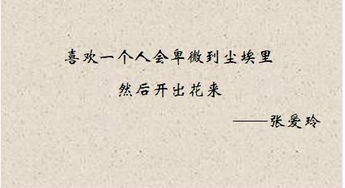 喜欢一个人会卑微到尘埃里
然后开出花来
——张爱玲